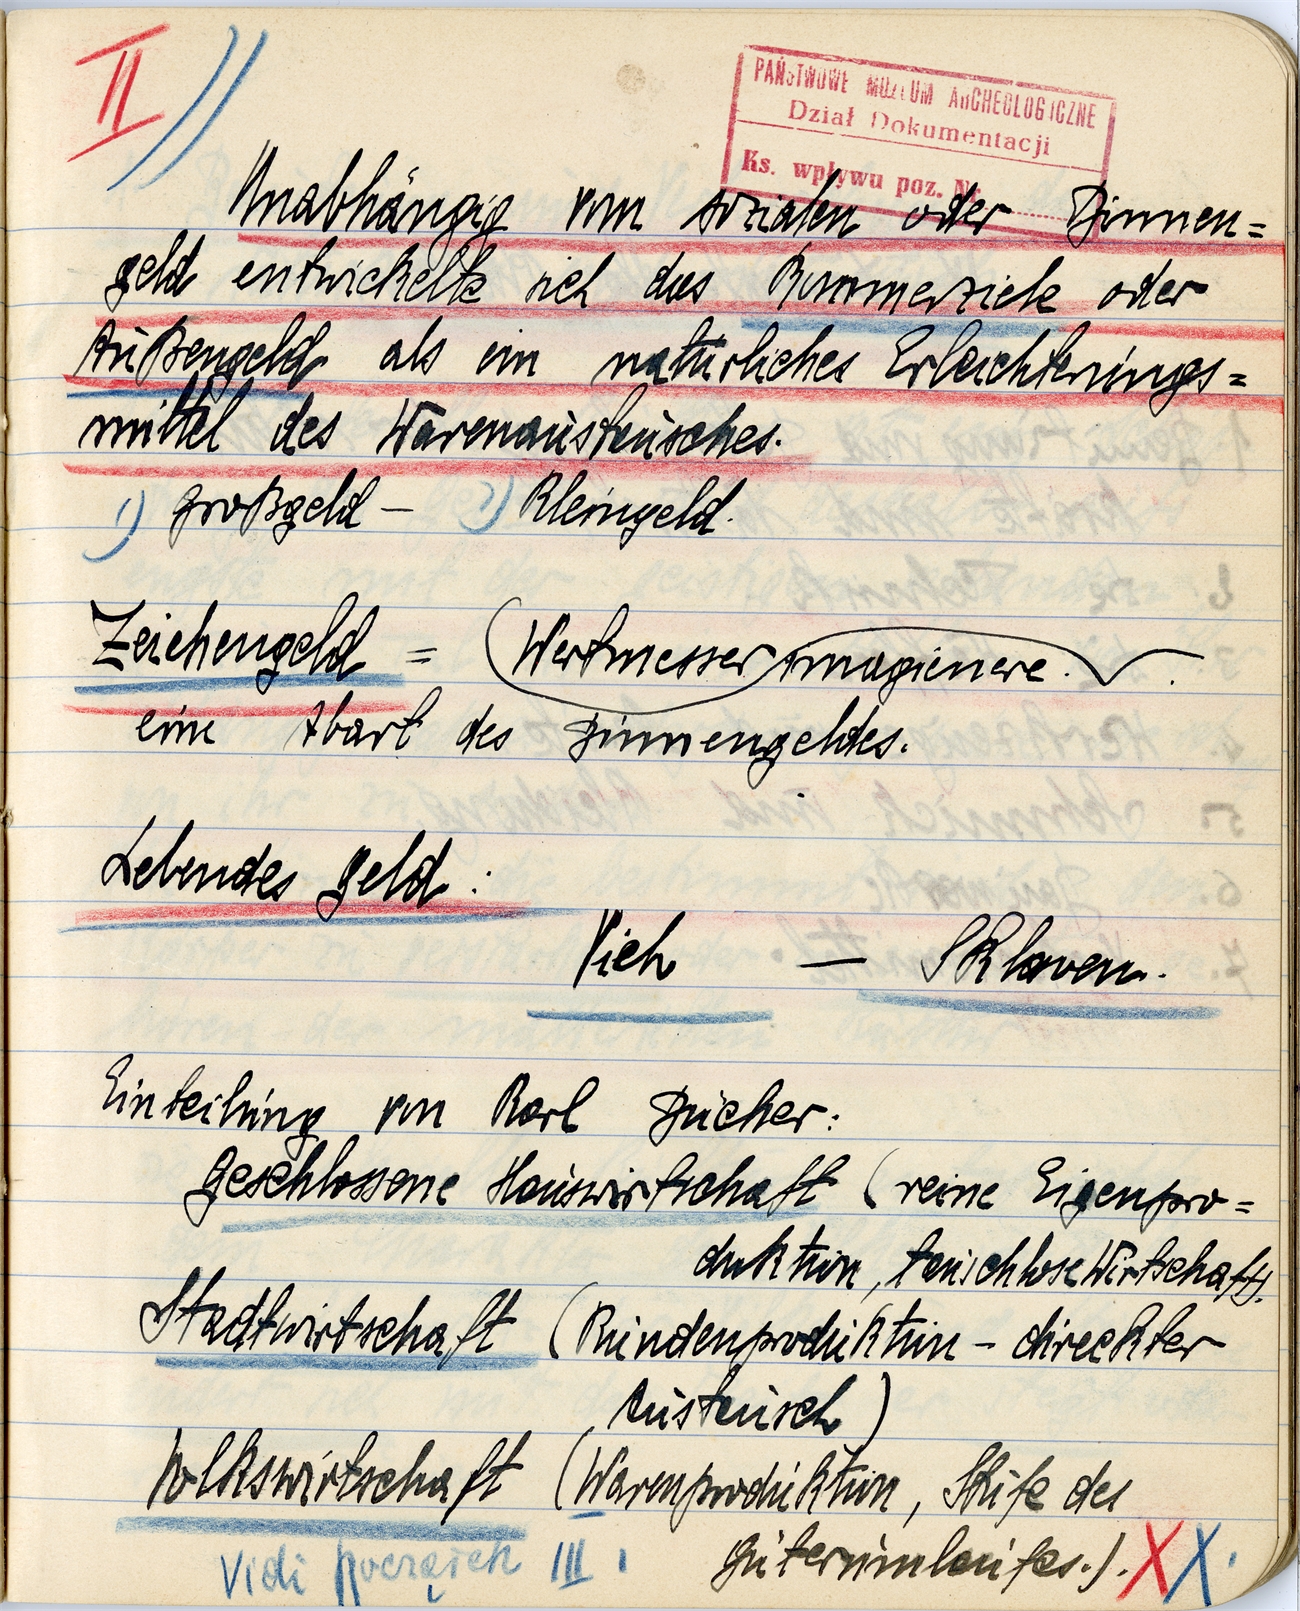 II
PAŃSTWOWE MUZEUM ARCHEOLOGICZNE
Dział Dokumentacji
Ks. wpływu poz. Nr.
Unabhängig vom sozialen oder Binnen=
geld entwickelte sich das Kommerzielle oder
Außengeld als ein natürliches Erleichterungs=
mittel des Warenaustausches.
1) Großgeld – 2) Kleingeld.
Zeichengeld = (Wertmesser imaginere.
eine Abart des Binnengeldes.
Lebendes Geld :
Vieh — Sklaven.
Einteilung von Karl Bücher:
Geschlossene Hauswirtschaft (reine Eigenpro=
duktion, tauschlose Wirtschaft).
Stadtwirtschaft (Kundenproduktion – direckter
Austausch)
Volkswirtschaft (Warenproduktion, Stufe des
Güterumlaufes.). XX.
Vidi początek III.